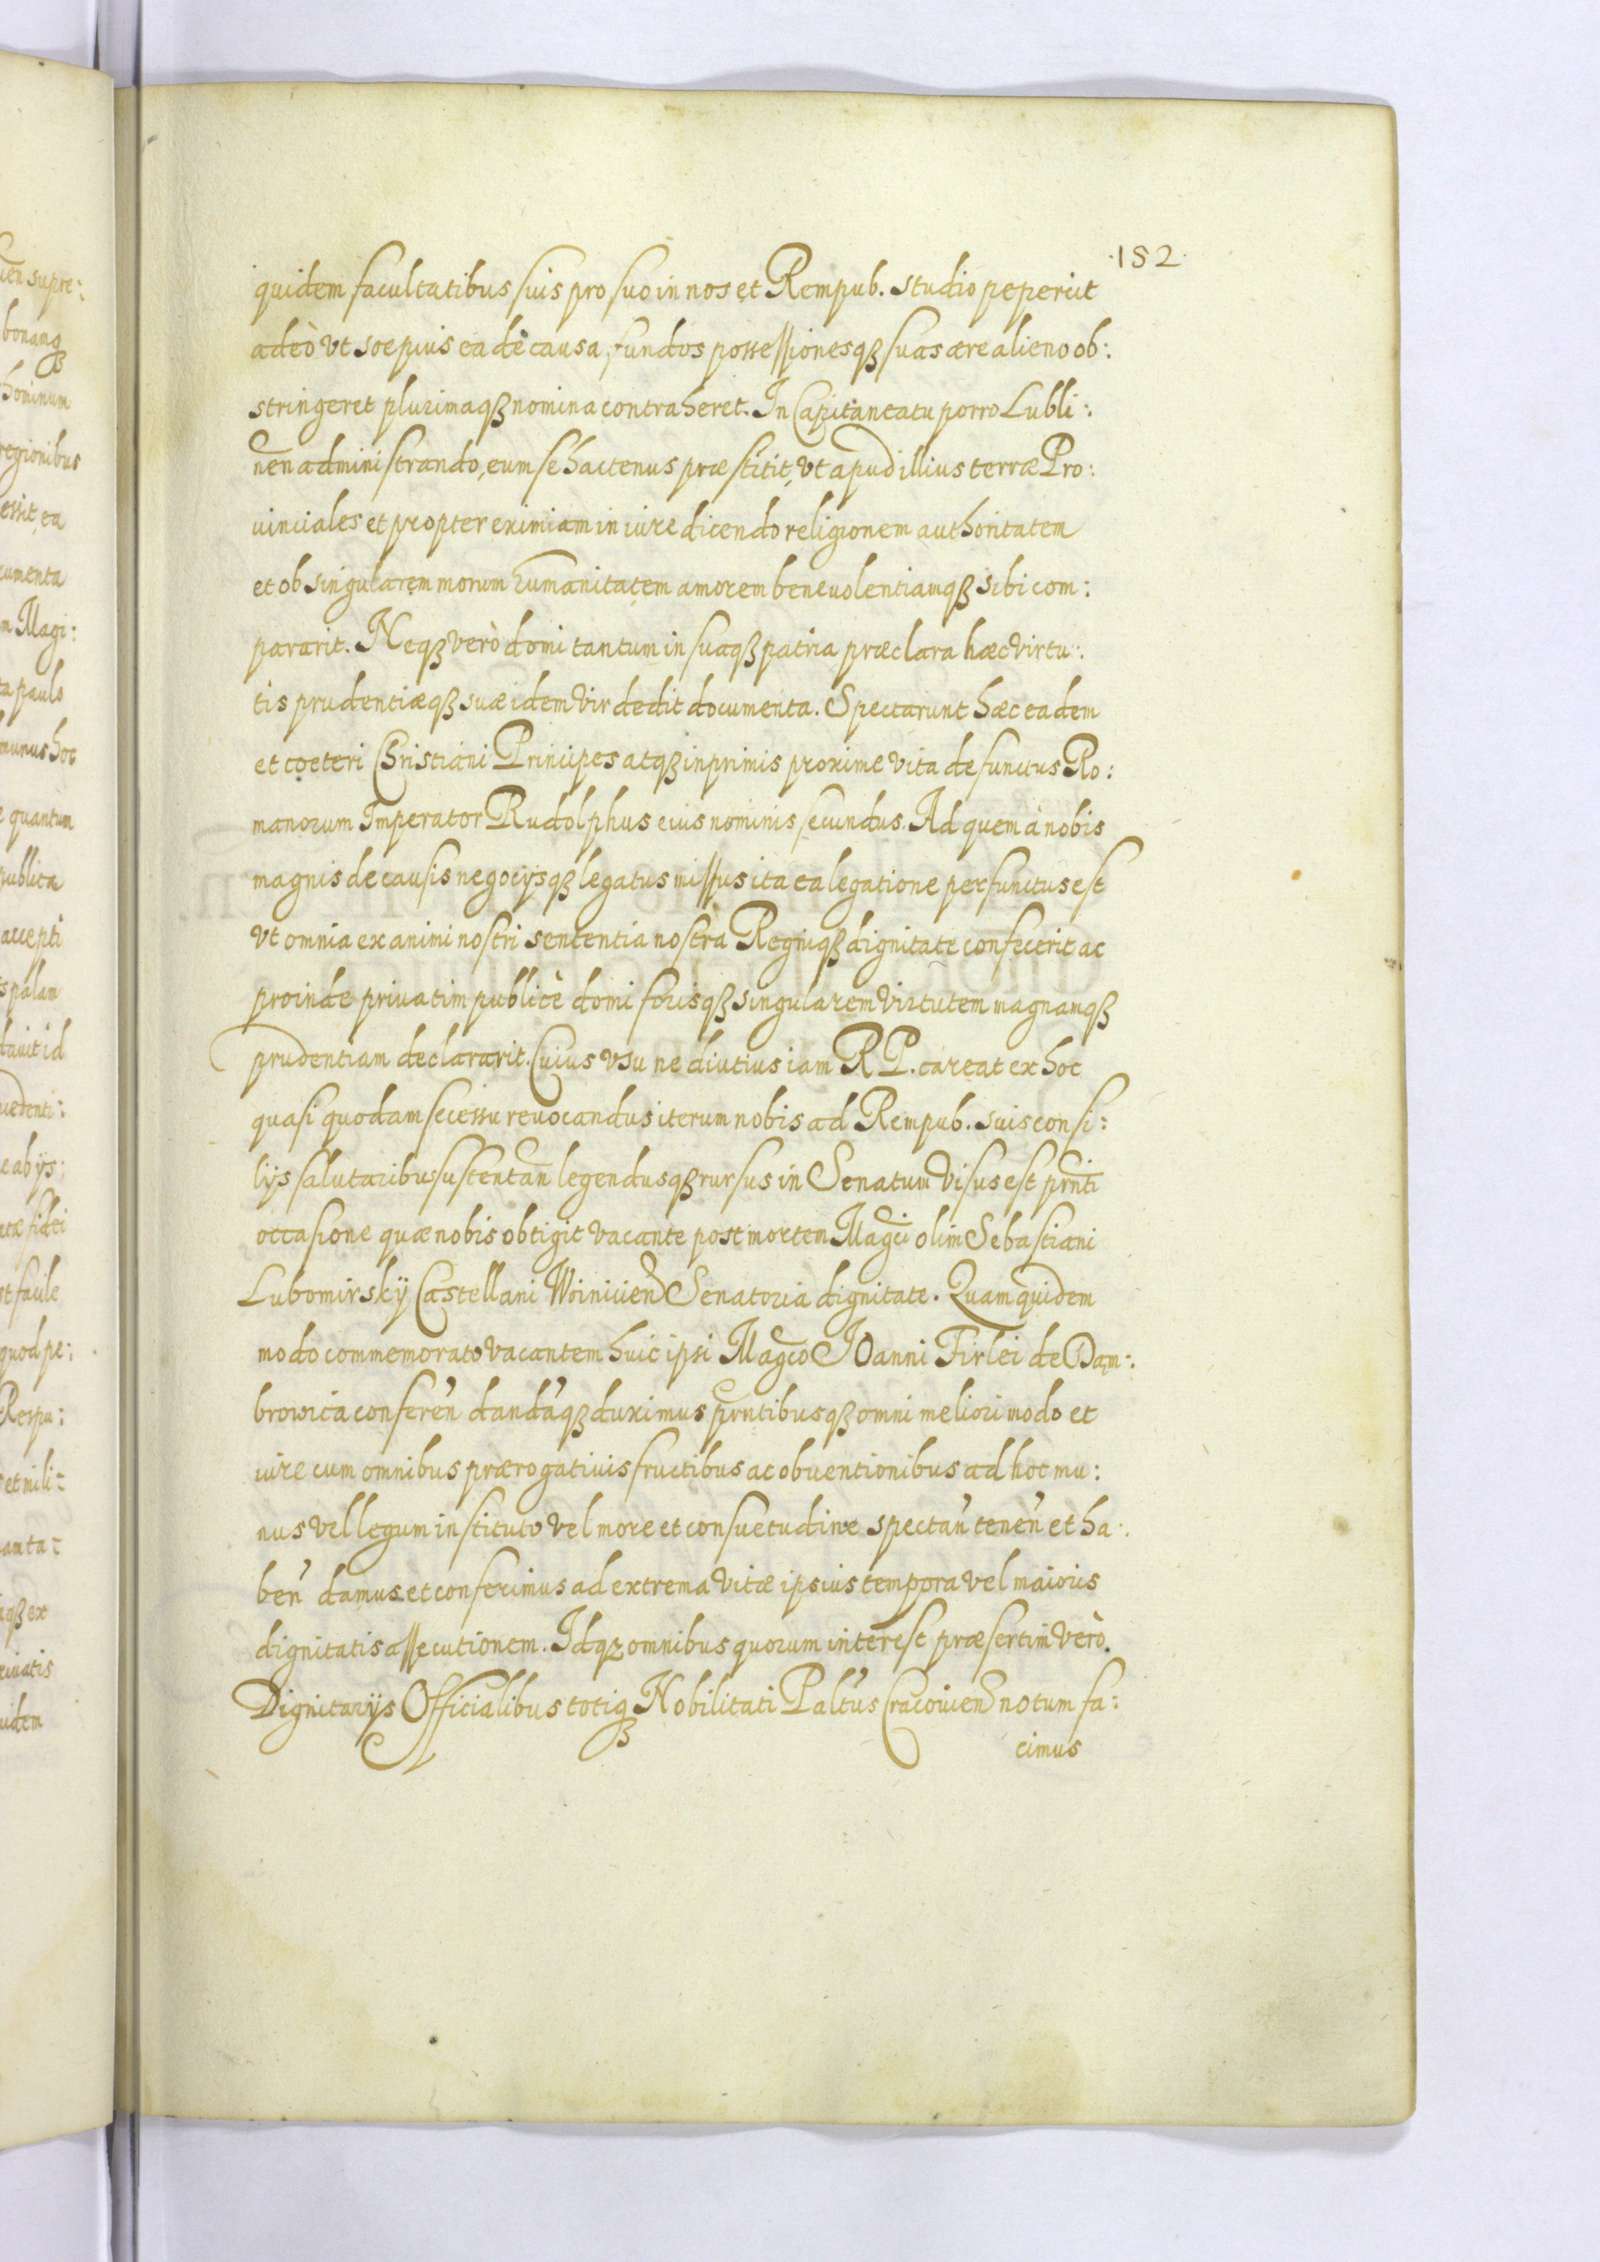 ·152·
quidem facultatibus suis pro suo in nos et Rempub. studio pepercit
adeò vt soepius ea dè causa, fundos possessionesqꝫ suas ære alieno ob:
stringeret plurimaqꝫ nomina contraheret. In Capitaneatu porro Lubli:
nen administrando, eum se hactenus præstitit, vt apud illius terræ Pro:
uinciales et propter eximiam in iure dicendo religionem authoritatem
et ob singularem morum humanitatem amorem beneuolentiamqꝫ sibi com:
pararit. Neqꝫ verò domi tantum in suaqꝫ patria præclara hæc virtu:
tis prudentiæqꝫ suæ idem vir dedit documenta. Spectarunt hæc eadem
et coeteri Christiani Principes atqꝫ inprimis proxime vita defunctus Ro:
manorum Imperator Rudolphus eius nominis secundus. Ad quem à nobis
magnis de causis negocijsqꝫ legatus missus ita ea legatione perfunctus est
vt omnia ex animi nostri sententia nostrà Regniqꝫ dignitate confecerit ac
proinde priuatim publicè domi forisqꝫ singularem virtutem magnamqꝫ
prudentiam declararit. Cuius vsu ne diutius iam R P. careat ex hoc
quasi quodam secessu reuocandus iterum nobis ad Rempub. suis consi:
lijs salutaribus sustentan̄ legendusqꝫ rursus in Senatum visus est prnti
occasione quæ nobis obtigit vacante post mortem Magci olim Sebastiani
Lubomirskÿ Castellani Woinicien Senatoria dignitate. Quam quidem
modo commemorato vacantem huic ipsi Magco IOanni Firlei de Dam:
browica conferen̉ dandāqꝫ duximus prntibusqꝫ omni meliori modo et
iure cum omnibus prærogatiuis fructibus ac obuentionibus ad hoc mu:
nus vel legum instituto vel more et consuetudine spectan̉ tenen̉ et ha:
ben̉ damus et conferimus ad extrema vitæ ipsius tempora vel maioris
dignitatis assecutionem. Idqꝫ omnibus quorum interest præsertim verò
Dignitarijs Officialibus totiqꝫ Nobilitati Paltus Cracouien notum fa:
cimus